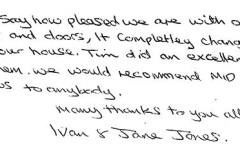 Say how pleased we are with o
and doors, It Completley chang
our house. Tim did an excellen
em. we would recommend MID
us to anybody.
Many thanks to you all
Ivan & Jane Jones.